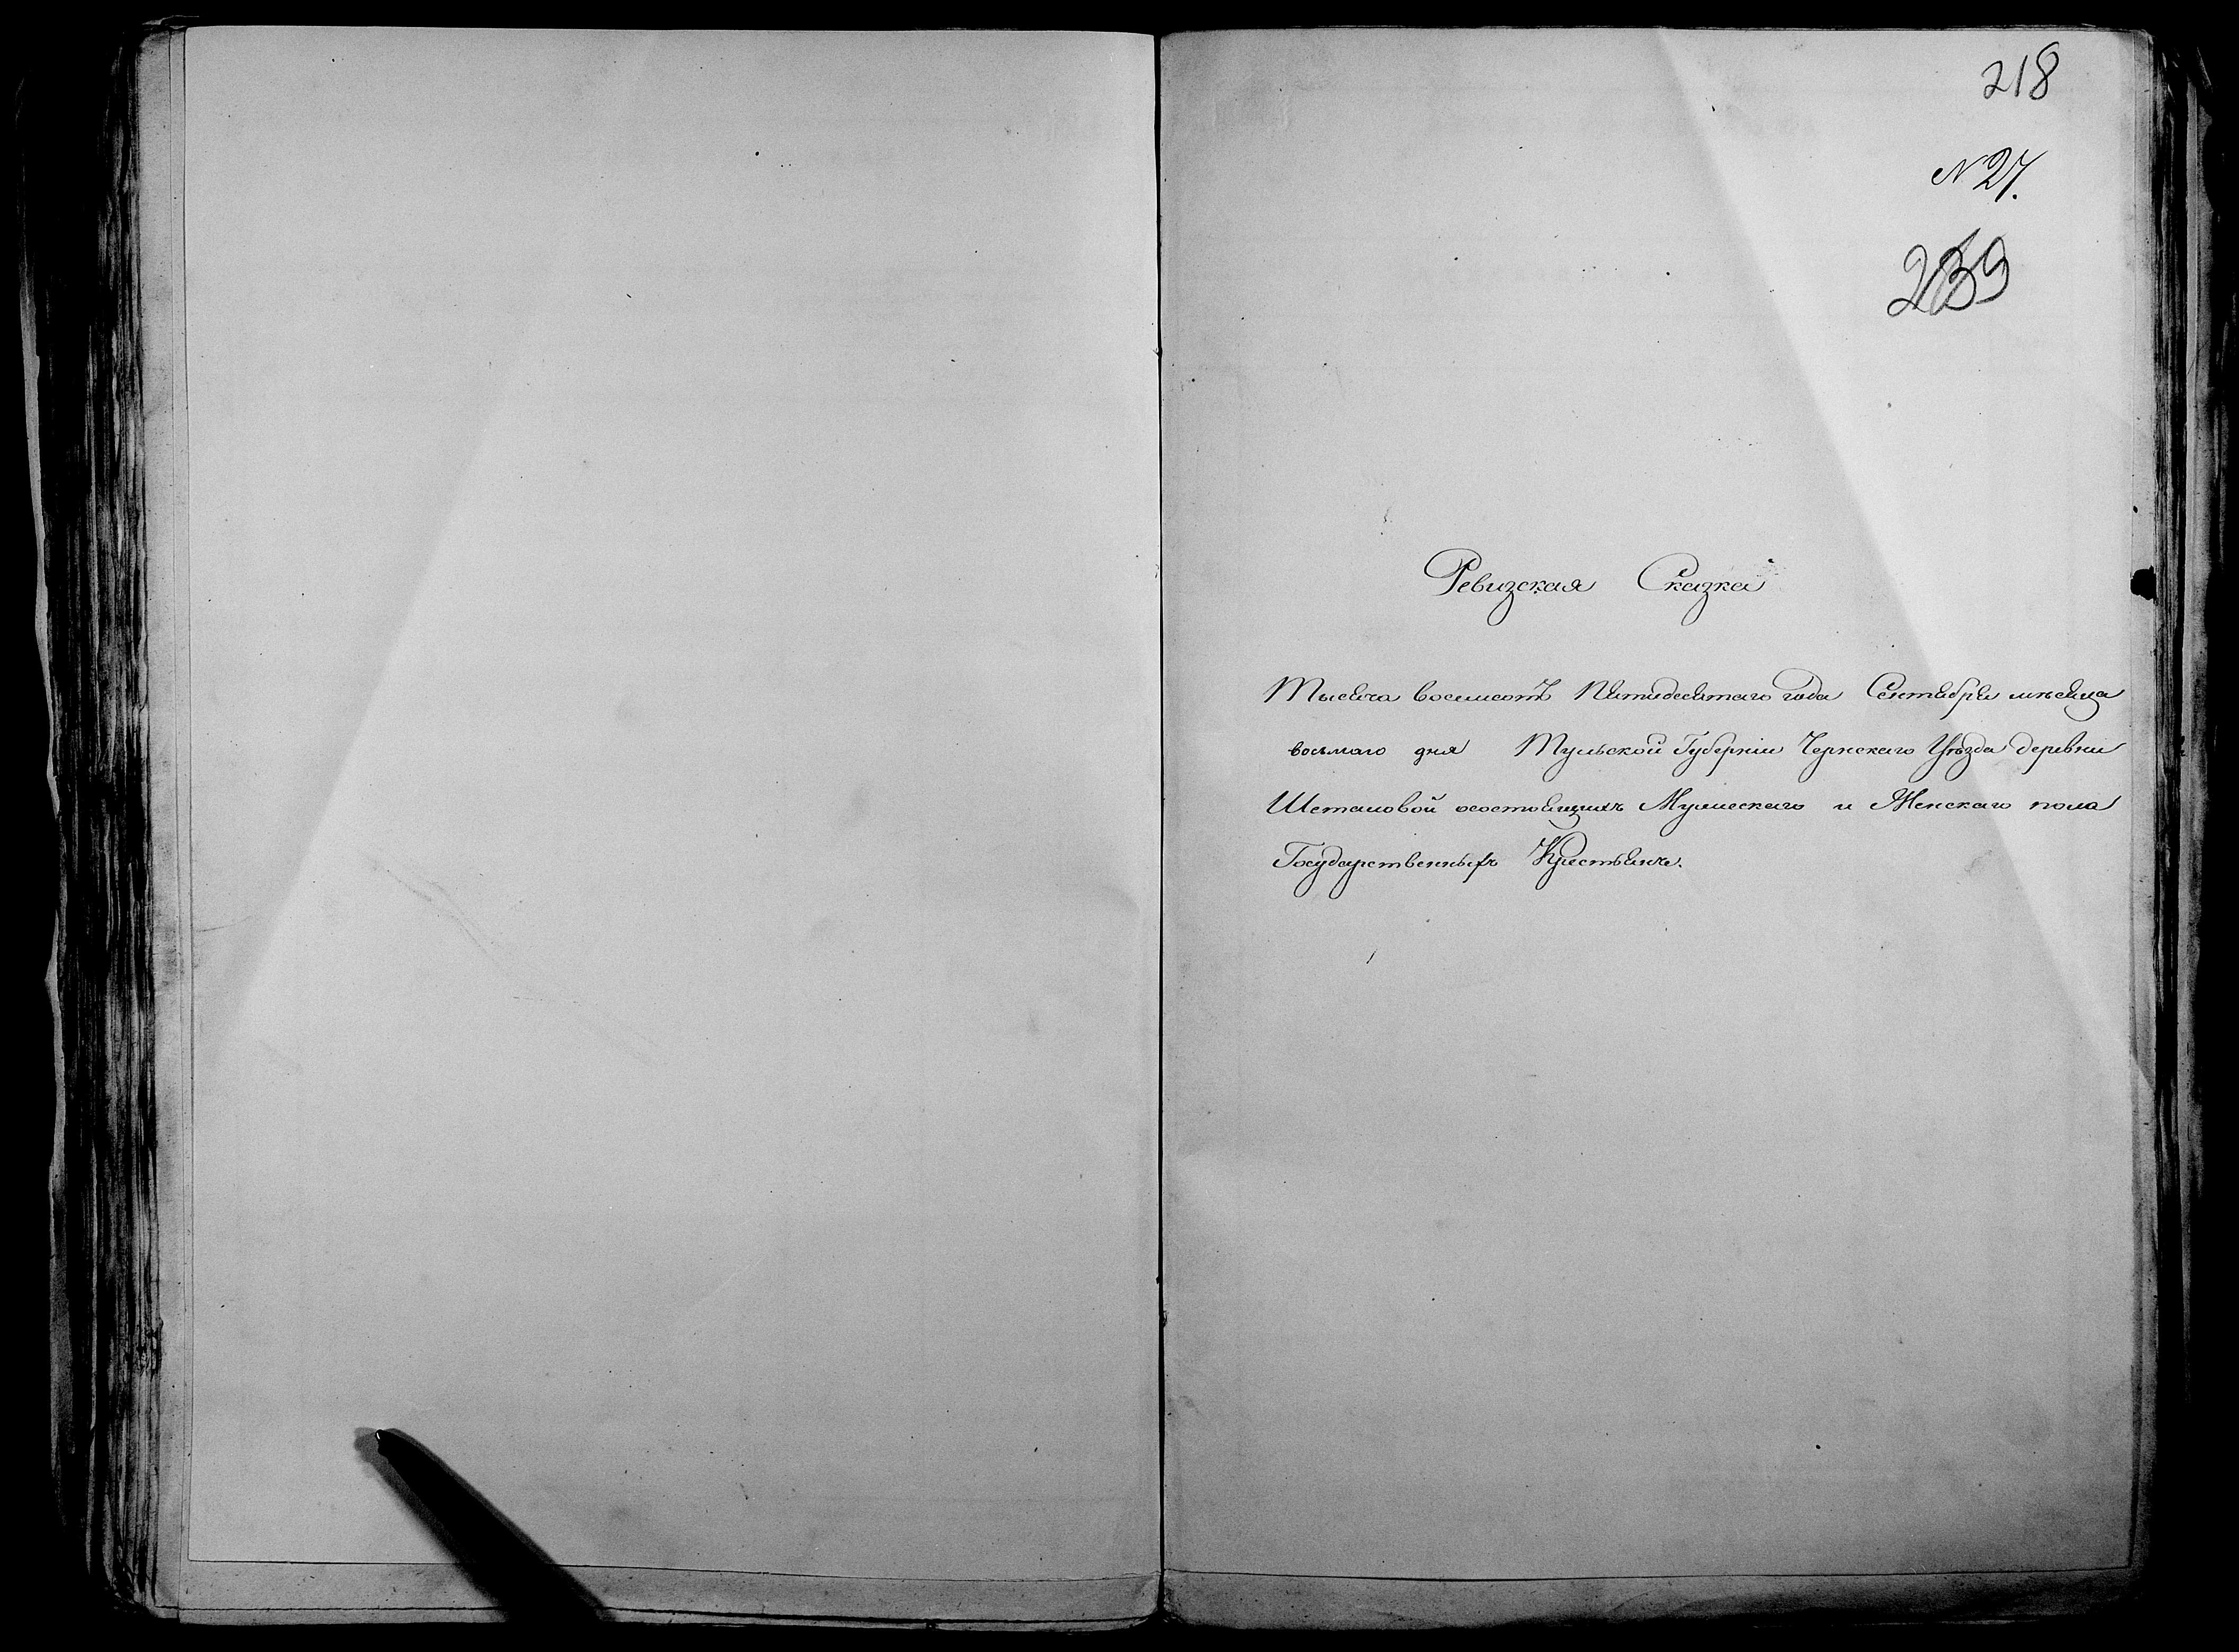 218
N 27.
239
Ревизская Сказка
Тысяча восемсотъ Пятидесятаго года Сентября мѣсяца
восьмаго дня Тульской Губерніи Чернскаго Уѣзда деревни
осостоящихъ Мужескаго и Женскаго пола
Государственныхъ Крестьянъ.